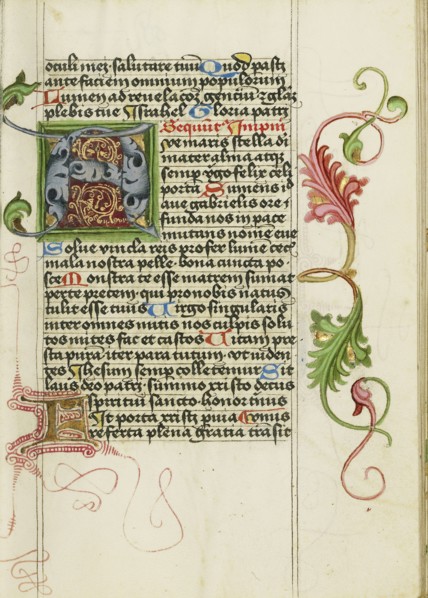 oculi mei salutare tuū Quod pasti
ante faciem omnium populorum
Lumen ad revelacōz genciū ⁊ glaz
plebis tue Israhel Gloria patri
Sequit Impni
Ave maris stella di
mater alma atqz
semp v̄go felix celi
porta Sumens id
aue gabrielis ore
funda nos in pace
mutans nomē eve
Solve vincla reis profer lumē cecis
mala nostra pelle bona cuncta po
sce Monstra te esse matrem sumat
per te precem qui pro nobis natus
tulit esse tuus Virgo singularis
inter omnes mitis nos culpis solu
tos mites fac et castos Vitam pre
sta pura iter para tutum vt viden
tes Jhesum semp colletemur Sit
laus deo patri summo xristo decus
spiritui sancto honor tribus
Fit porta xristi pvia Omnis
referta plena gratia transit